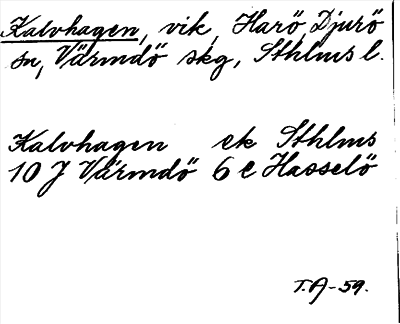 Kalvhagen, vik, Harö, Djurö
sn, Värmdö skg, Sthlms l.
Kalvhagen ek Sthlms
10 J Värmdö 6 e Hasselö
T.A-59.